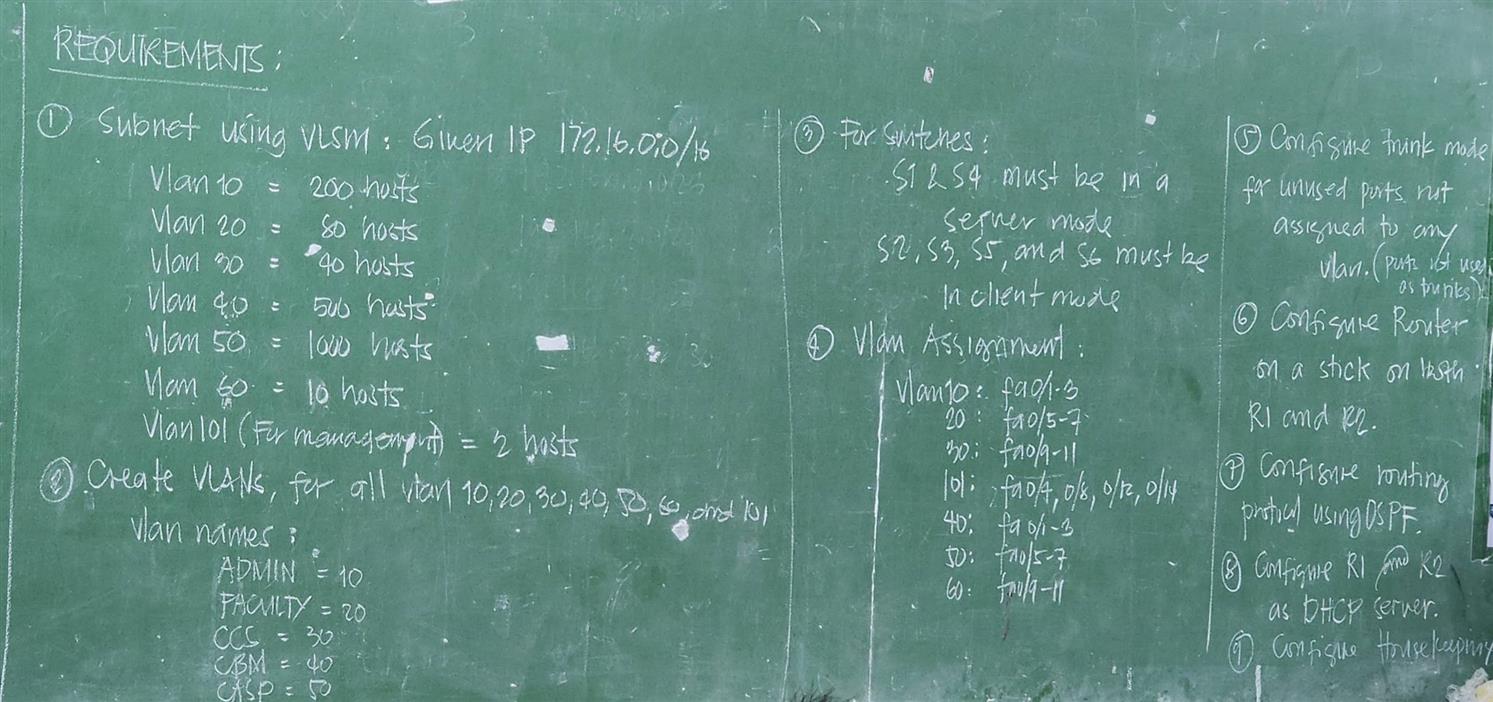 REQUIREMENTS:
① Subnet using VLSM: Given IP 172.16.0.0/16
Vlan 10 = 200 hosts
Vlan 20 = 80 hosts
Vlan 30 = 40 hosts
Vlan 40 = 500 hosts
Vlan 50 = 1000 hosts
Vlan 60 = 10 hosts
Vlan 101 (For management) = 2 hosts
② Create VLANs, for all vlan 10, 20, 30, 40, 50, 60, and 101
Vlan names:
ADMIN = 10
FACULTY = 20
CCS = 30
CBM = 40
CASP = 50
③ For switches:
S1 & S4 must be in a
server mode
S2, S3, S5, and S6 must be
in client mode
④ Vlan Assignment:
Vlan 10: fa0/1-3
20: fa0/5-7
30: fa0/9-11
101: fa0/4, 0/8, 0/12, 0/14
40: fa0/1-3
50: fa0/5-7
60: fa0/9-11
⑤ Configure trunk mode
for unused ports not
assigned to any
vlan. (ports not used
as trunks)
⑥ Configure Router
on a stick on both
R1 and R2.
⑦ Configure routing
using OSPF.
⑧ Configure R1 and R2
as DHCP server.
⑨ Configure Housekeeping